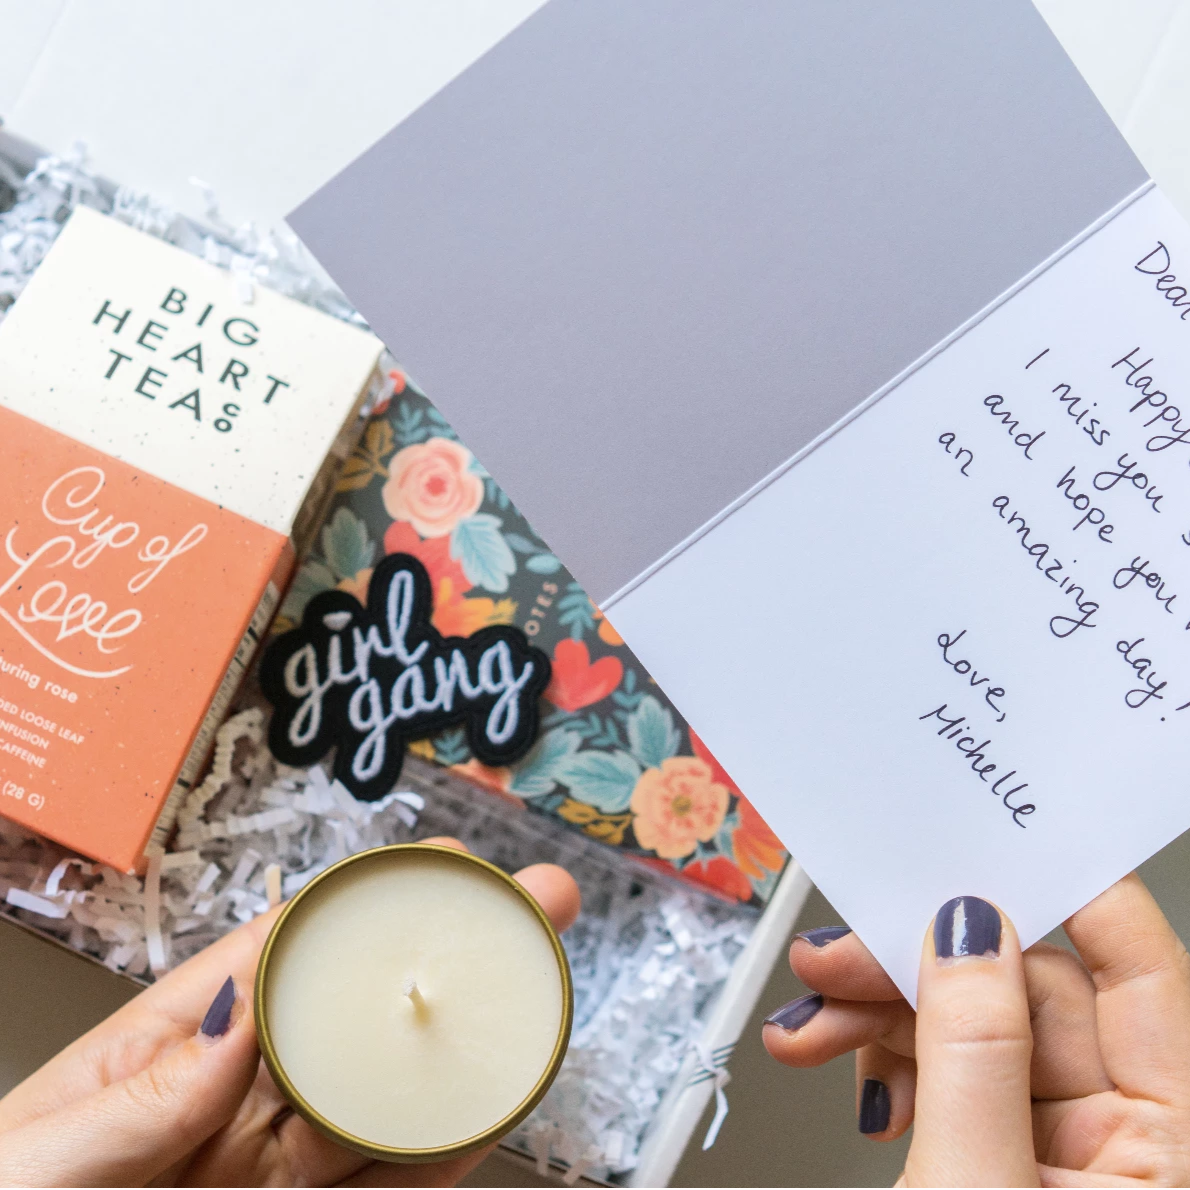 BIG
HEART
TEA Co
Cup of
Love
rose
LOOSE LEAF
CAFFEINE
(28 G)
girl
gang
Dear
Happy
I miss you
and hope you
an amazing day!
Love,
Michelle